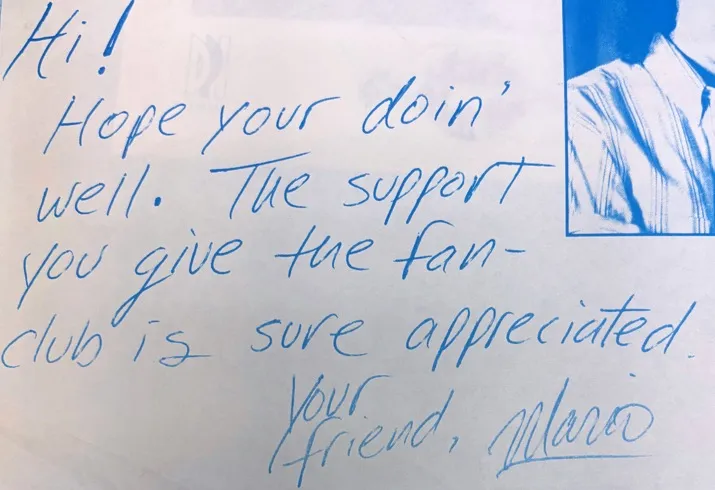 Hi!
Hope your doin'
well. The support
you give the fan-
club is sure appreciated.
your
friend, Mario